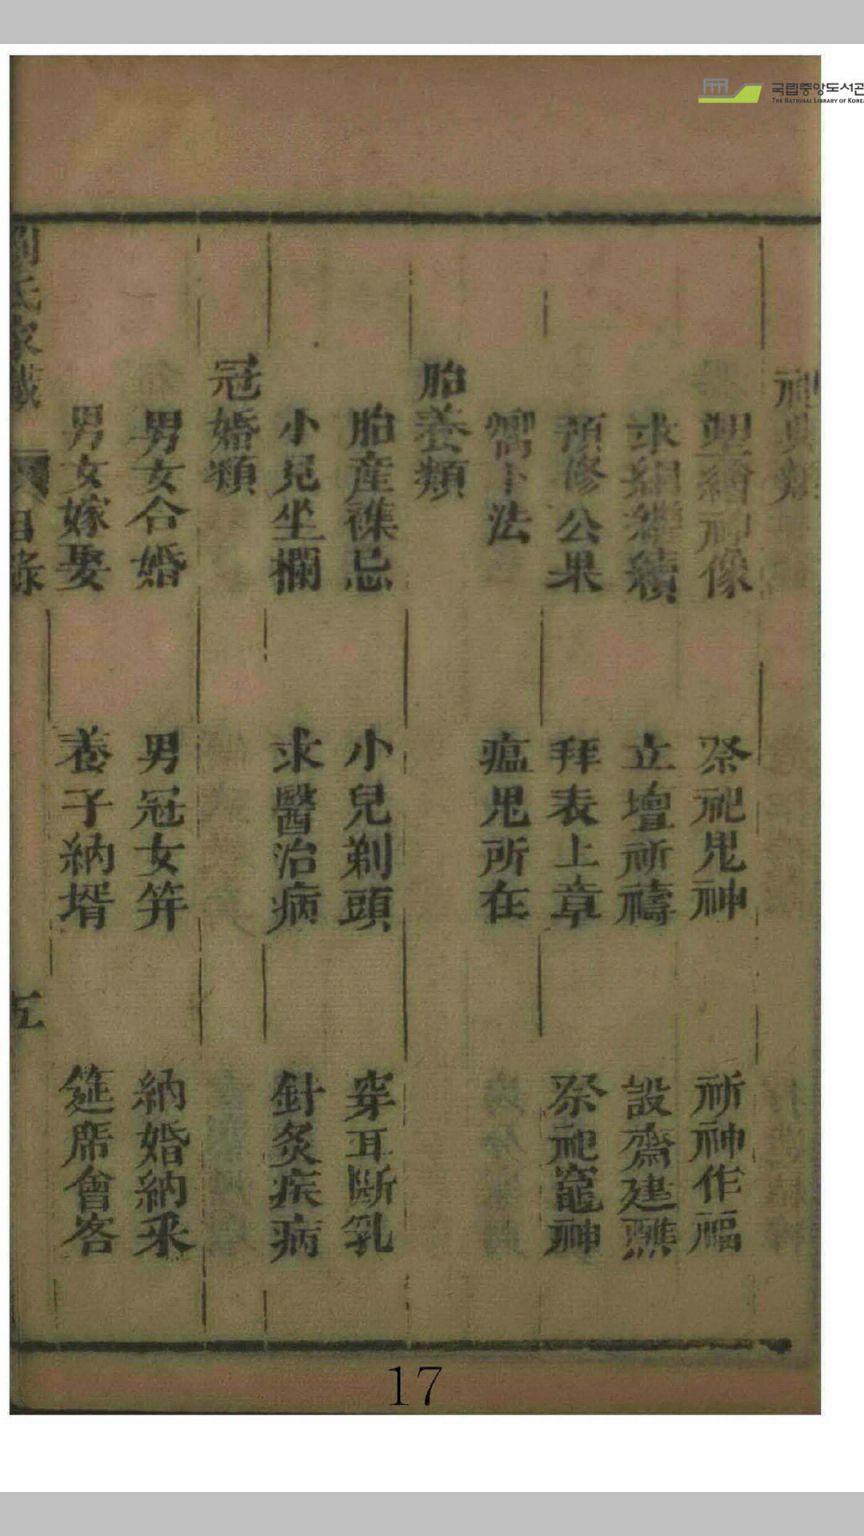 국립중앙도서관
THE NATIONAL LIBRARY OF KOREA
祀典類
塑繪神像 祭祀鬼神 祈神作福
求嗣繼續 立壇祈禱 設齋建醮
預修公果 拜表上章 祭祀竈神
卜法 瘟鬼所在
胎養類
胎産襍忌 小兒剃頭 穿耳斷乳
小兒坐欄 求醫治病 針灸疾病
冠婚類
男女合婚 男冠女笄 納婚納采
男女嫁娶 養子納壻 筵席會客
劉氏家藏 目錄 五
17